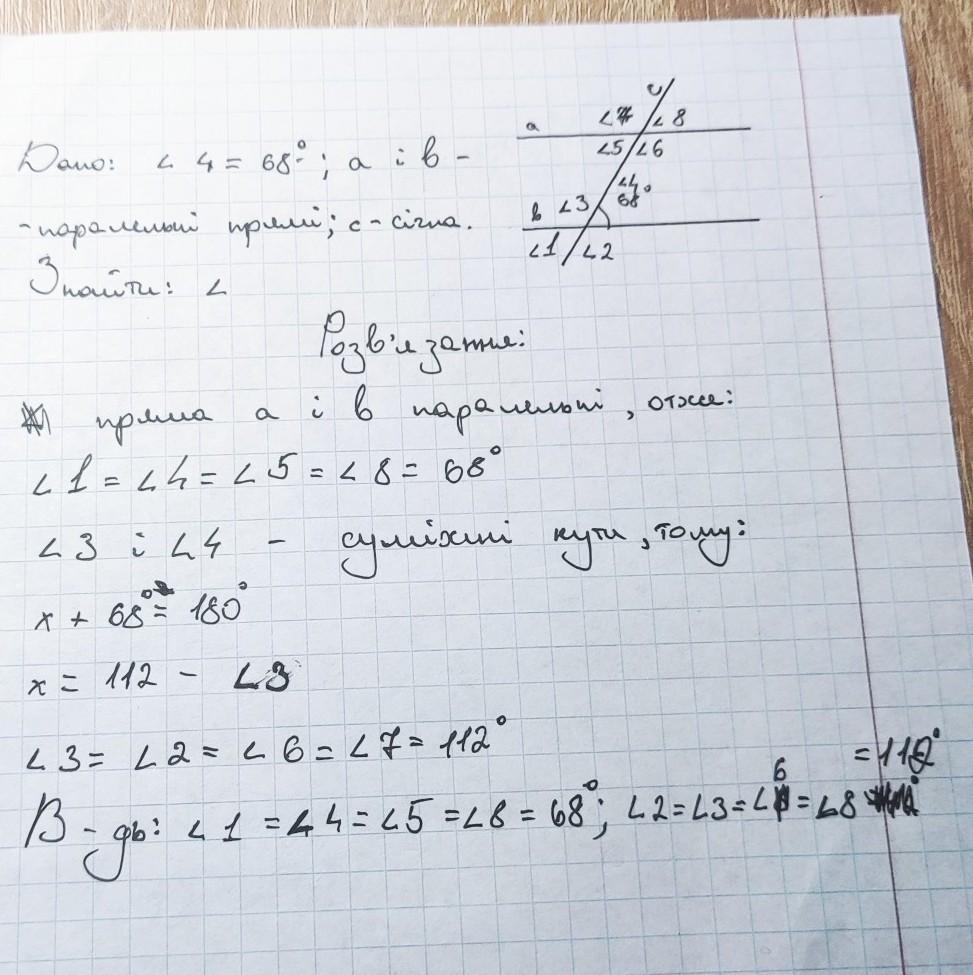 Дано: ∠ 4 = 68°; a і b -
-паралельні прямі; c - січна.
Знайти: ∠
c
a ∠7 ∠8
∠5 ∠6
∠4
b ∠3 68°
∠1 ∠2
Розв'язання:
пряма a і b паралельні, отже:
∠1 = ∠4 = ∠5 = ∠8 = 68°
∠3 і ∠4 - суміжні кути, тому:
x + 68° = 180°
x = 112 - ∠3
∠3 = ∠2 = ∠6 = ∠7 = 112°
В-дь: ∠1 = ∠4 = ∠5 = ∠8 = 68°; ∠2 = ∠3 = ∠6 = ∠8 = 112°